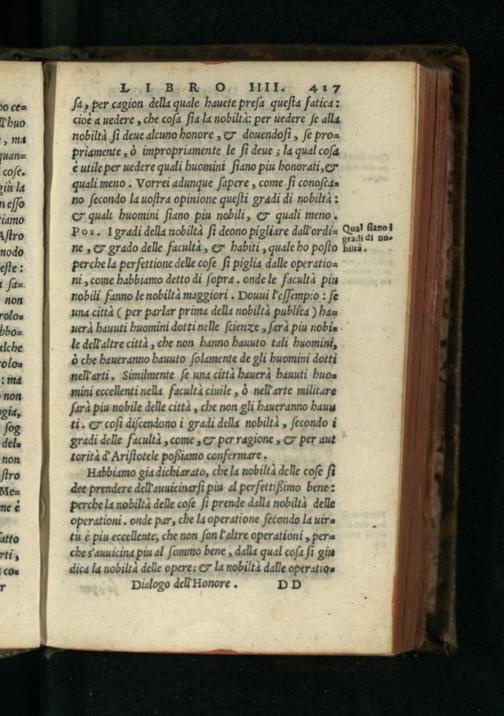 LIBRO IIII. 417
sa, per cagion della quale hauete presa questa fatica:
cioè a vedere, che cosa sia la nobiltà: per vedere se alla
nobiltà si deue alcuno honore, & douendosi, se pro=
priamente, ò impropriamente le si deue; la qual cosa
è utile per vedere quali huomini siano piu honorati, &
quali meno. Vorrei adunque sapere, come si conosca=
no secondo la uostra opinione questi gradi di nobiltà:
& quali huomini siano piu nobili, & quali meno.
Pos. I gradi della nobiltà si deono pigliare dall'ordi=
ne, & grado delle facultà, & habiti, quale ho posto
perche la perfettione delle cose si piglia dalle operatio=
ni, come habbiamo detto di sopra. onde le facultà piu
nobili fanno le nobiltà maggiori. Douui l'essempio: se
una città (per parlar prima della nobiltà publica) ha=
uerà hauuti huomini dotti nelle scienze, sarà piu nobi=
le dell'altre città, che non hanno hauuto tali huomini,
ò che haueranno hauuto solamente de gli huomini dotti
nell'arti. Similmente se una città hauerà hauuti huo=
mini eccellenti nella facultà ciuile, ò nell'arte militare
sarà piu nobile delle città, che non gli haueranno hauu
ti. & così discendono i gradi della nobiltà, secondo i
gradi delle facultà, come, & per ragione, & per aut
torità d'Aristotele possiamo confermare.
Habbiamo gia dichiarato, che la nobiltà delle cose si
dee prendere dell'auuicinarsi piu al perfettissimo bene:
perche la nobiltà delle cose si prende dalla nobiltà delle
operationi. onde par, che la operatione secondo la uir=
tù è piu eccellente, che non son l'altre operationi, per=
che s'auuicina piu al sommo bene, dalla qual cosa si giu
dica la nobiltà delle opere; & la nobiltà dalle operatio=
Dialogo dell'Honore. DD
Qual siano i
gradi di no=
biltà.